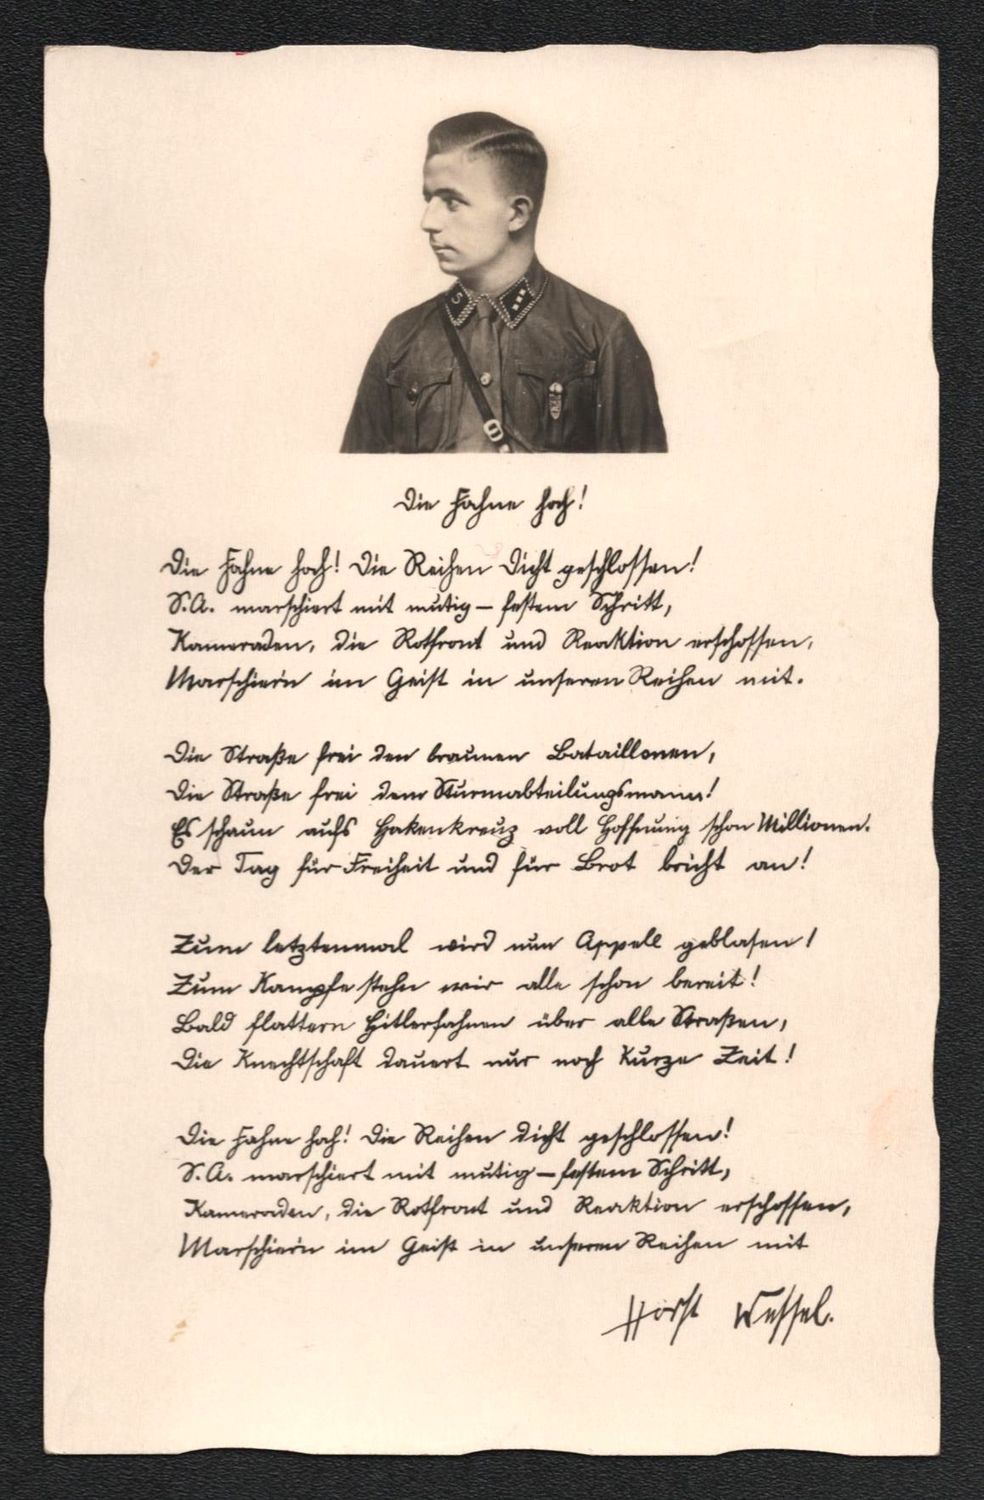 5
Die Fahne hoch!
Die Fahne hoch! Die Reihen dicht geschlossen!
S.A. marschiert mit mutig-festem Schritt,
Kameraden, die Rotfront und Reaktion erschossen,
Marschier'n im Geist in unseren Reihen mit.
Die Straße frei den braunen Bataillonen,
Die Straße frei dem Sturmabteilungsmann!
Es schaun aufs Hakenkreuz voll Hoffnung schon Millionen.
Der Tag für Freiheit und für Brot bricht an!
Zum letztenmal wird nun Appell geblasen!
Zum Kampfe stehn wir alle schon bereit!
Bald flattern Hitlerfahnen über alle Straßen,
Die Knechtschaft dauert nur noch kurze Zeit!
Die Fahne hoch! Die Reihen dicht geschlossen!
S.A. marschiert mit mutig-festem Schritt,
Kameraden, die Rotfront und Reaktion erschossen,
Marschier'n im Geist in unseren Reihen mit
Horst Wessel.